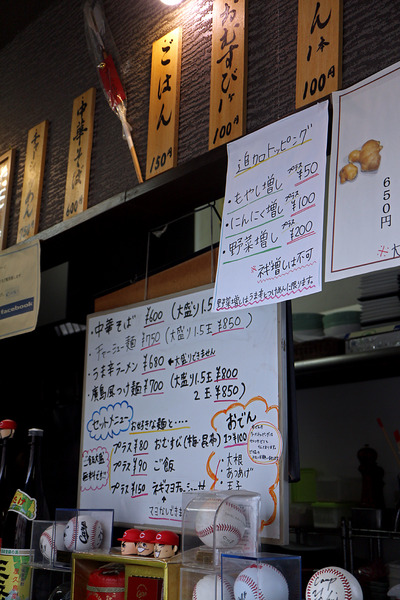 中華そば
600円
ごはん
150円
おむすび1ケ
100円
ん 1本
100円
追加トッピング
・もやし増し プラス ¥50
・にんにく増し プラス ¥100
・野菜増し プラス ¥200
※ネギ増しは不可
野菜増しはうま辛とつけめんに限ります。
650円
facebook
・中華そば ¥600 (大盛り1.5
・チャーシュー麺 ¥750 (大盛り1.5玉 ¥850)
・うま辛ラーメン ¥680 ←大盛りできません
・廣島風つけ麺 ¥700 (大盛り1.5玉 ¥800
2玉 ¥850)
セットメニュー
お好きな麺と・・・・
プラス ¥80 おむすび(梅・昆布)
プラス ¥90 ご飯
プラス ¥150 ネギマヨチャーシュー丼
おでん
1ケ ¥100
・大根
・あつあげ
・玉子